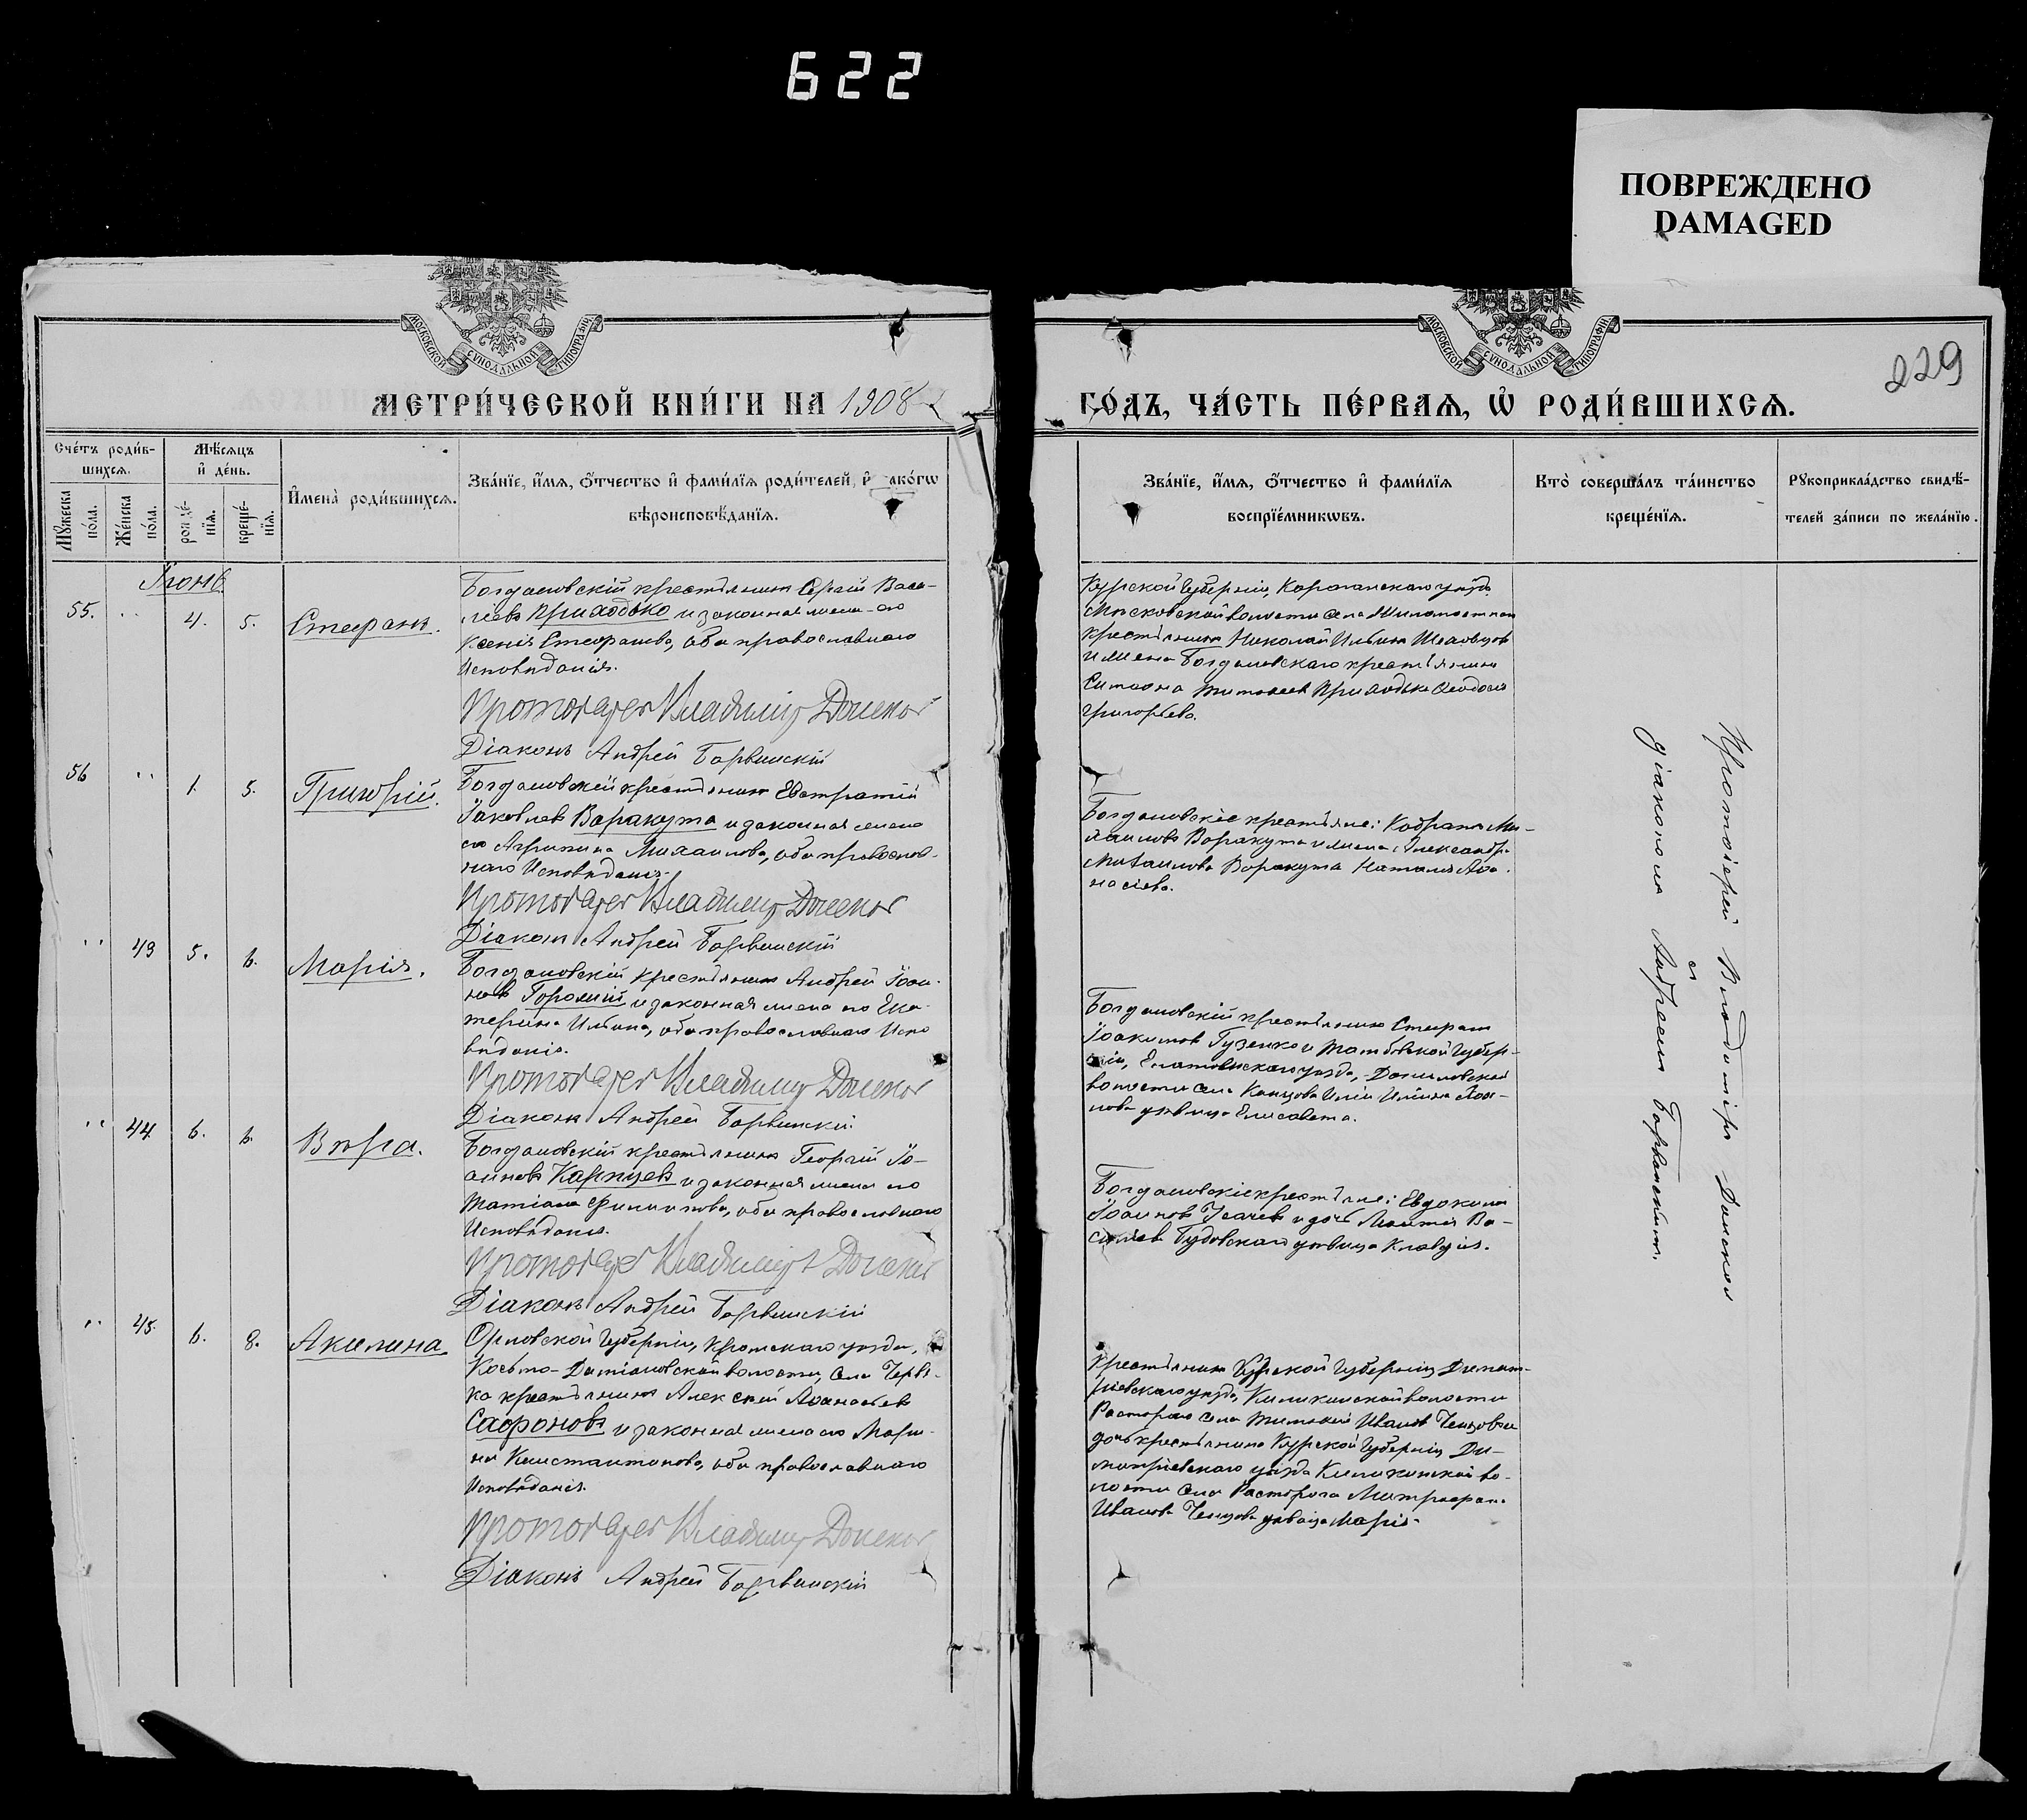 622
ПОВРЕЖДЕНО
DAMAGED
МОСКОВСКОЙ СѴНОДАЛЬНОЙ ТИПОГРАФІИ
МОСКОВСКОЙ СѴНОДАЛЬНОЙ ТИПОГРАФІИ
229
МЕТРИ́ЧЕСКОЙ КНИ́ГИ НА 1908
ГО́ДЪ, ЧА́СТЬ ПЕ́РВАѦ, Ѡ҆ РОДИ́ВШИХСѦ.
Сче́тъ роди́в-
шихсѧ.
Мꙋ́жеска по́ла.
Же́нска по́ла.
Мѣ́сѧцъ и҆ де́нь.
рожде́-
нїѧ.
креще́-
нїѧ.
И҆мена̀ роди́вшихсѧ.
Зва́нїе, и҆́мѧ, ѻ҆́тчество и҆ фами́лїѧ роди́телей, и҆ ако́гѡ
вѣроисповѣ́данїѧ.
Зва́нїе, и҆́мѧ, ѻ҆́тчество и҆ фами́лїѧ
воспрїе́мникѡвъ.
Кто̀ соверша́лъ та́инство
креще́нїѧ.
Рꙋкоприкла́дство свидѣ́-
телей за́писи по жела́нїю.
Іюнь
55. " 4. 5. Стефанъ.
Богдановскій крестьянинъ Сергій Васи-
ліевъ Приходько и законная жена его
Ксенія Стефанова, оба православнаго
Исповѣданія.
Протоіерей Владиміръ Донской
Діаконъ Андрей Борвинскій
Курской губерніи, Корочанскаго уѣзда
волости села
крестьянинъ Николай Ильинъ
и жена Богдановскаго крестьянина
Симеона Тимофеева Приходька Феодосія
Григорьева.
56 " 1. 5. Григорій.
Богдановскій крестьянинъ Евстратій
Іаковлевъ Воракута и законная жена
его Агрипина Михаилова, оба православ-
наго Исповѣданія.
Протоіерей Владиміръ Донской
Діаконъ Андрей Борвинскій
Богдановскіе крестьяне: Кодратъ Ми-
хаиловъ Воракута и жена Александра
Михаилова Воракута Наталія Афа-
насіева.
" 43 5. 6. Марія.
Богдановскій крестьянинъ Андрей Іоан-
новъ и законная жена его Ека-
терина Ильина, оба православнаго Испо
вѣданія.
Протоіерей Владиміръ Донской
Діаконъ Андрей Борвинскій
Богдановскій крестьянинъ Стефанъ
Іоакимовъ Гузенко и Тамбовской губер-
ніи, уѣзда, Даниловской
волости села Иліи
дѣвица Елисавета.
" 44 6. 6. Вѣра.
Богдановскій крестьянинъ Георгій Іо-
анновъ Карпцевъ и законная жена его
Татіана Филипова, оба православнаго
Исповѣданія.
Протоіерей Владиміръ Донской
Діаконъ Андрей Борвинскій
Богдановскіе крестьяне: Евдокимъ
Іоанновъ Усачевъ и дочь Ва-
силіева Гудовскаго дѣвица Клавдія.
" 45. 6. 8. Акилина
Орловской губерніи, Кромскаго уѣзда,
Косьмо-Даміановской волости, села Червя-
ка крестьянинъ Алексѣй Афанасьевъ
Сафоновъ и законная жена его Мари-
на Константинова, оба православнаго
Исповѣданія.
Протоіерей Владиміръ Донской
Діаконъ Андрей Борвинскій
Крестьянинъ Курской губерніи Димит-
ріевскаго уѣзда, волости
села Тимофей Ивановъ Ченцовъ и
дочь крестьянина Курской губерніи Ди-
митріевскаго уѣзда во-
лости села Митрофана
Иванова Ченцова дѣвица Марія.
Протоіерей Владиміръ Донской
съ
діакономъ Андреемъ Борвинскимъ.